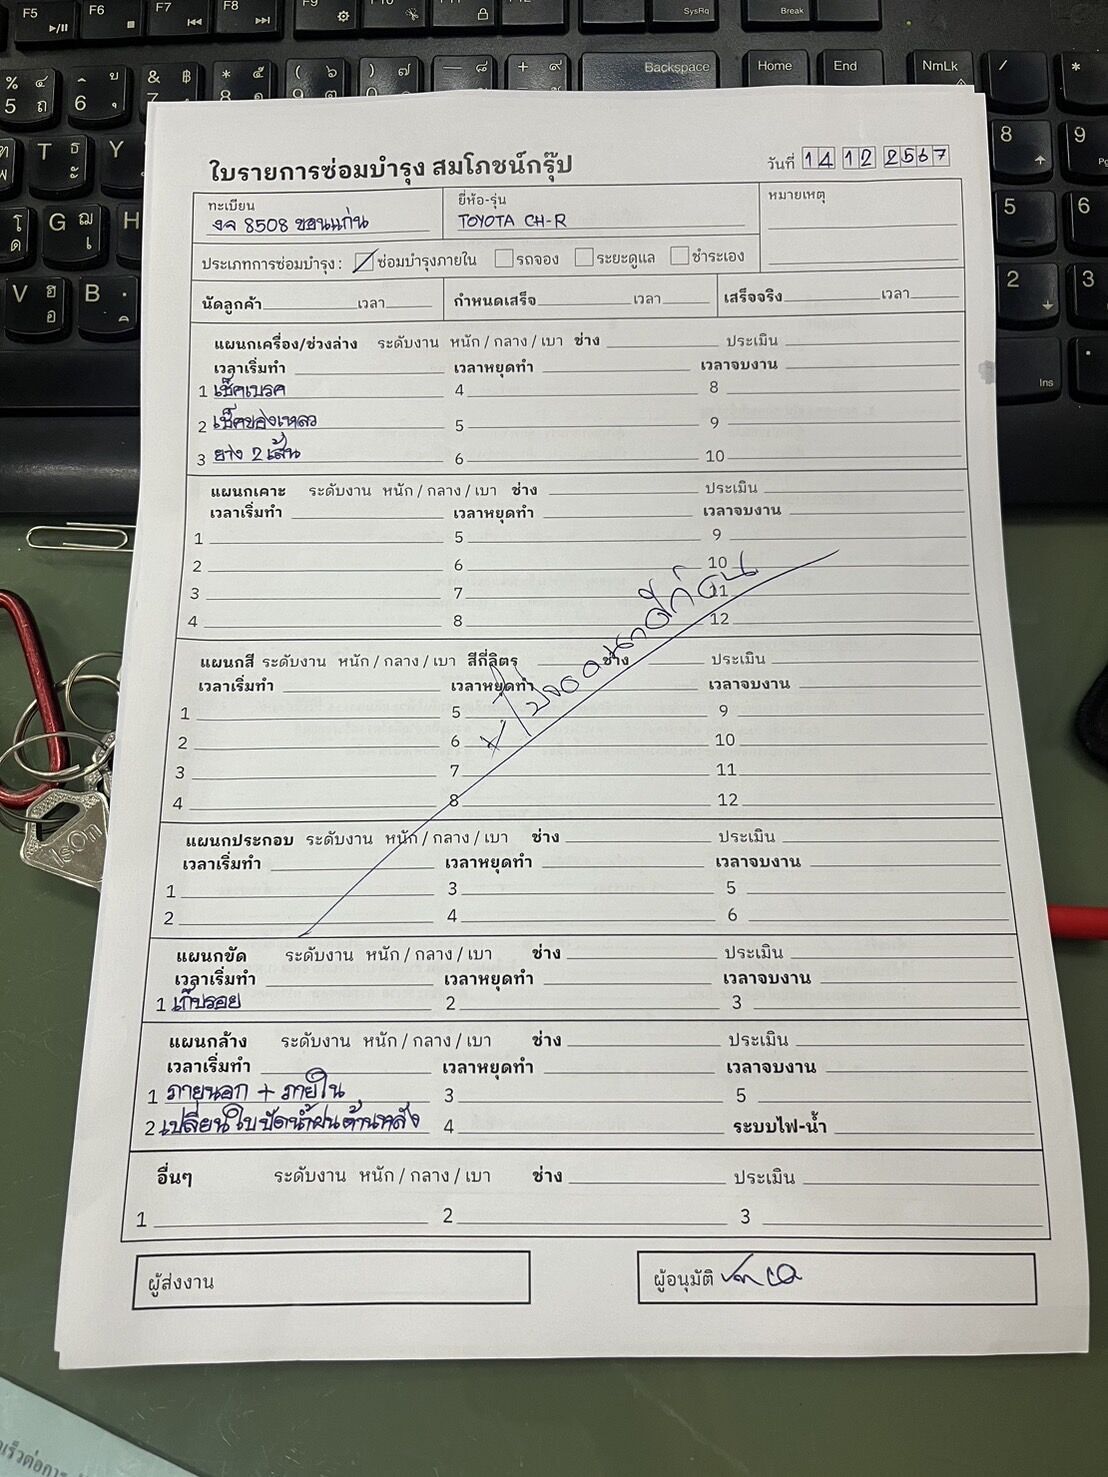 ใบรายการซ่อมบำรุง สมโภชน์กรุ๊ป
วันที่ 14 12 2567
ทะเบียน
งจ 8508 ขอนแก่น
ยี่ห้อ-รุ่น
TOYOTA CH-R
หมายเหตุ
ประเภทการซ่อมบำรุง : ซ่อมบำรุงภายใน รถจอง ระยะดูแล ชำระเอง
นัดลูกค้า เวลา กำหนดเสร็จ เวลา เสร็จจริง เวลา
แผนกเครื่อง/ช่วงล่าง ระดับงาน หนัก / กลาง / เบา ช่าง ประเมิน
เวลาเริ่มทำ เวลาหยุดทำ เวลาจบงาน
1 เช็คเบรค 4 8
2 เช็คของเหลว 5 9
3 ยาง 2 เส้น 6 10
แผนกเคาะ ระดับงาน หนัก / กลาง / เบา ช่าง ประเมิน
เวลาเริ่มทำ เวลาหยุดทำ เวลาจบงาน
1 5 9
2 6 10
3 7 11
4 8 12
แผนกสี ระดับงาน หนัก / กลาง / เบา สีกี่ลิตร ช่าง ประเมิน
เวลาเริ่มทำ เวลาหยุดทำ เวลาจบงาน
1 5 9
2 6 10
3 7 11
4 8 12
แผนกประกอบ ระดับงาน หนัก / กลาง / เบา ช่าง ประเมิน
เวลาเริ่มทำ เวลาหยุดทำ เวลาจบงาน
1 3 5
2 4 6
แผนกขัด ระดับงาน หนัก / กลาง / เบา ช่าง ประเมิน
เวลาเริ่มทำ เวลาหยุดทำ เวลาจบงาน
1 เก็บรอย 2 3
แผนกล้าง ระดับงาน หนัก / กลาง / เบา ช่าง ประเมิน
เวลาเริ่มทำ เวลาหยุดทำ เวลาจบงาน
1 ภายนอก + ภายใน 3 5
2 เปลี่ยนใบปัดน้ำฝนด้านหลัง 4 ระบบไฟ-น้ำ
อื่นๆ ระดับงาน หนัก / กลาง / เบา ช่าง ประเมิน
1 2 3
ผู้ส่งงาน
ผู้อนุมัติ